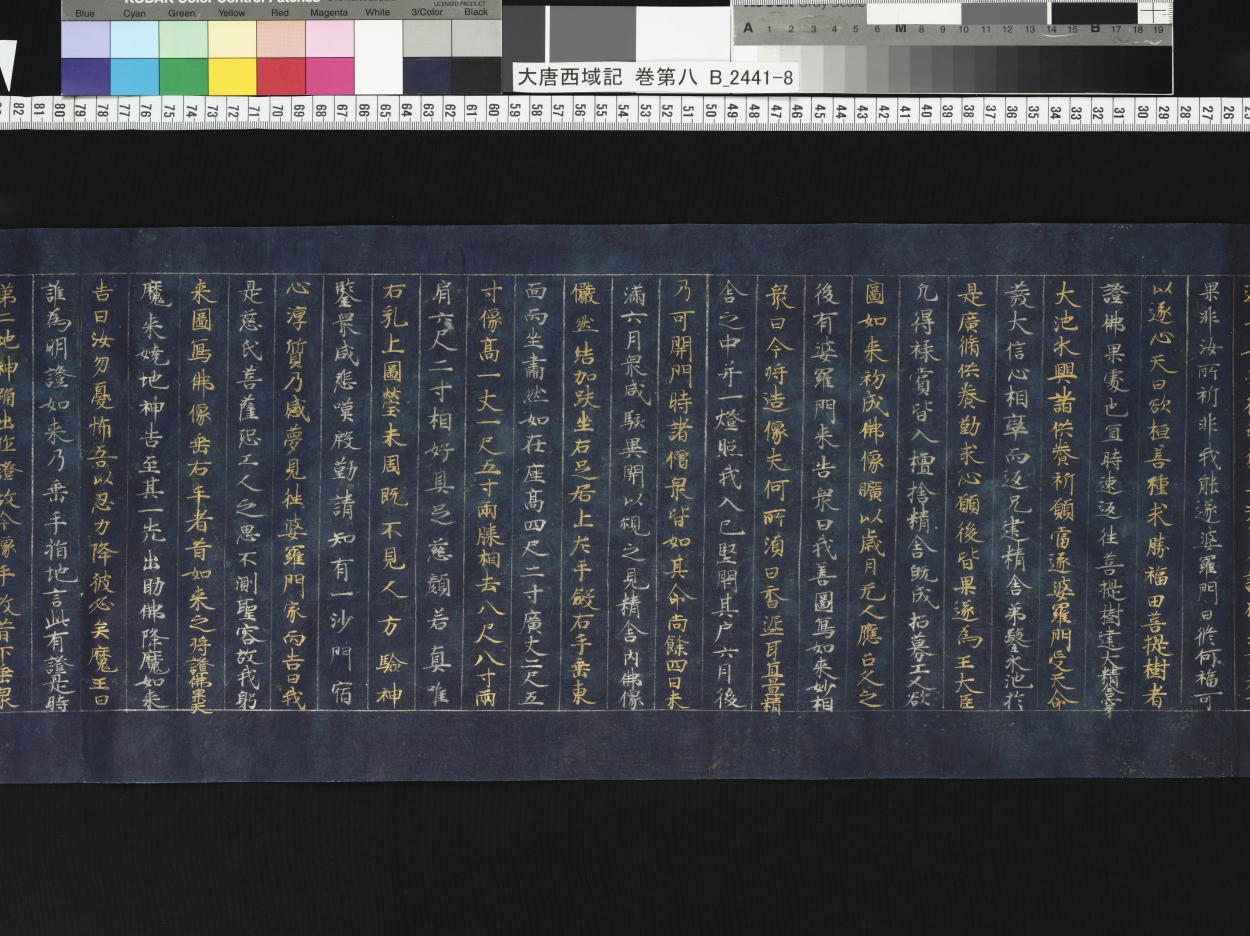 KODAK Color Control Patches
LICENSED PRODUCT
Blue Cyan Green Yellow Red Magenta White 3/Color Black
A 1 2 3 4 5 6 M 8 9 10 11 12 13 14 15 B 17 18 19
大唐西域記 巻第八 B_2441-8
82 81 80 79 78 77 76 75 74 73 72 71 70 69 68 67 66 65 64 63 62 61 60 59 58 57 56 55 54 53 52 51 50 49 48 47 46 45 44 43 42 41 40 39 38 37 36 35 34 33 32 31 30 29 28 27 26
果非汝所祈非我能遂婆羅門曰修何福可
以遂心天曰欲植善種求勝福田菩提樹者
證佛果處也宜時速返往菩提樹建大精舍穿
大池水興諸供養祈願當遂婆羅門受天命
義大信心相率而返兄建精舍弟鑿水池於
是廣脩供養勤求心願後皆果遂為王大臣
凡得祿賞皆入檀捨精舍既成招募工人欲
圖如來初成佛像曠以歲月无人應召久之
後有婆羅門來告眾曰我善圖寫如來妙相
眾曰今將造像夫何所須曰香泥耳宜置精
舍之中并一燈照我入已堅閉其户六月後
乃可開門時諸僧眾皆如其命尚餘四日未
滿六月眾咸駭異開以視之見精舍内佛像
儼然結加趺坐右足居上左手斂右手垂東
面而坐肅然如在座高四尺二寸廣丈二尺五
寸像高一丈一尺五寸兩膝相去八尺八寸兩
肩六尺二寸相好具足慈顏若真唯
右乳上圖瑩未周既不見人方驗神
鑒眾咸悲嘆殷勤請知有一沙門宿
心淳質乃感夢見往婆羅門家而告曰我
是慈氏菩薩恐工人之思不測聖容故我躬
來圖寫佛像垂右手者昔如來之將證佛果天
魔來嬈地神告至其一先出助佛降魔如來
告曰汝勿憂怖吾以忍力降彼必矣魔王曰
誰為明證如來乃垂手指地言此有證是時
第二地神踊出作證故今像手倣昔下垂眾